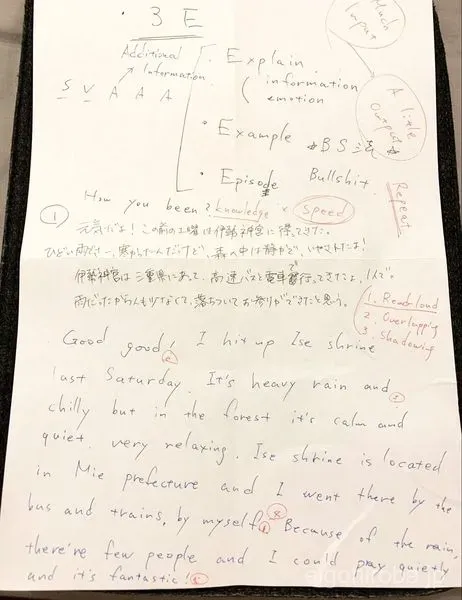 ・3E
Much Input
Additional Information
S V A A A
・Explain
( information
emotion
A little Output
・Example ☆BS法☆
・Episode Bullshit.
Repeat
① How you been? knowledge × speed
元気だよ！この前の土曜は伊勢神宮に行ってきた。
ひどい雨で、寒かったんだけど、森の中は静かで、いやされたよ！
伊勢神宮は三重県にあって、高速バスと電車で行ってきたよ、1人で。
雨だったから人も少なくて、落ちついてお参りができたと思う。
1. Read loud
2. Overlapping
3. Shadowing
Good good! I hit up Ise shrine
last Saturday. It's heavy rain and
chilly but in the forest it's calm and
quiet. very relaxing. Ise shrine is located
in Mie prefecture and I went there by the
bus and trains, by myself. Because of the rain,
there're few people and I could pray quietly
and it's fantastic!